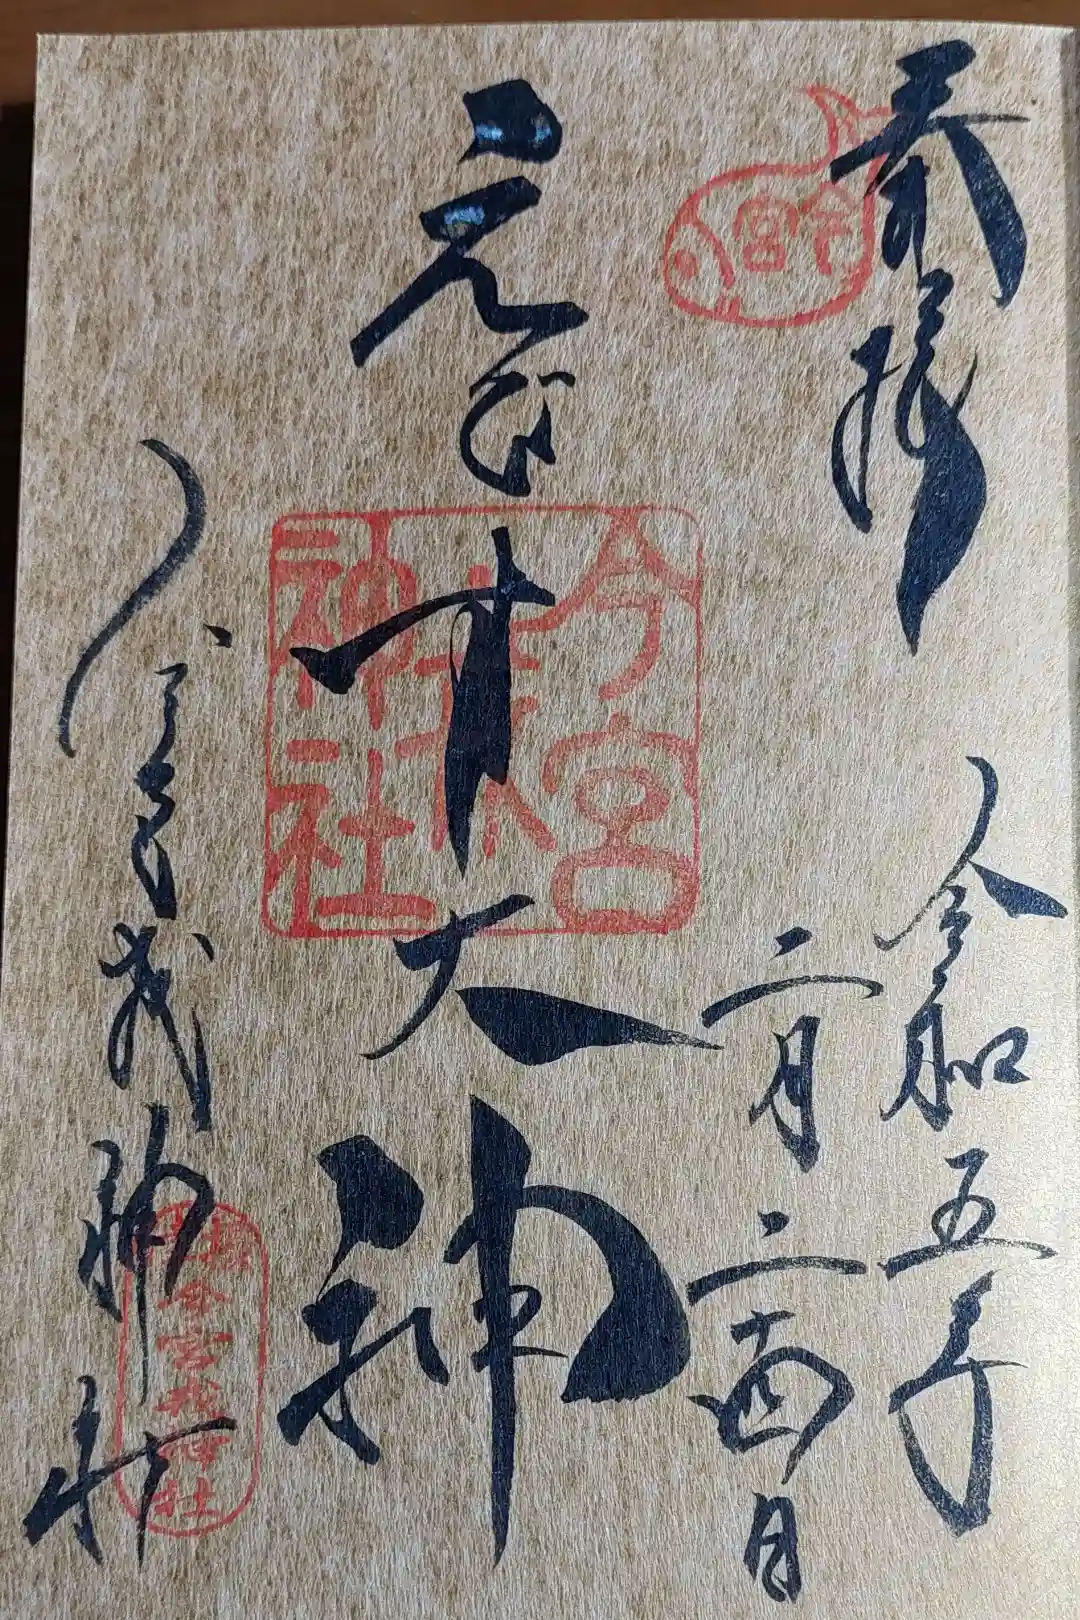 奉拝
今宮
令和五年
二月二十四日
えびす大神
今宮戎神社
今宮戎神社
今宮戎神社